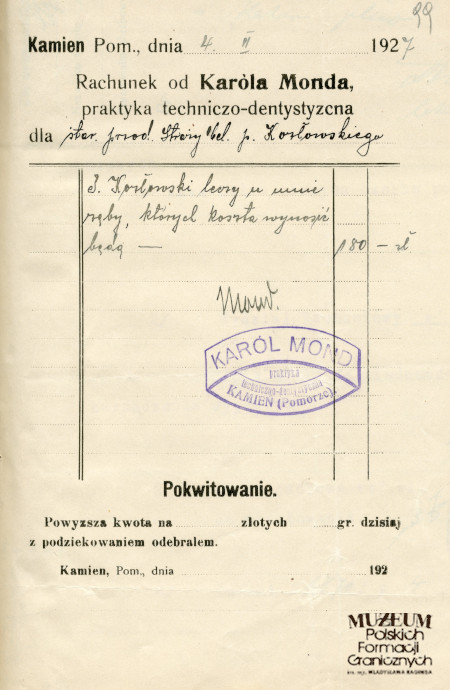 99
Kamien Pom., dnia 4. VI 1927
Rachunek od Karòla Monda,
praktyka techniczo-dentystyzcna
dla star. przod. Straży Cel. p. Kozłowskiego
J. Kozłowski leczy u mnie
zęby, których koszta wynosić
będą — 180 – zł
Mond.
KARÓL MOND
praktyka
techniczno-dentystyczna
KAMIEN (Pomorze)
Pokwitowanie.
Powyższa kwota na złotych gr. dzisiaj
z podziekowaniem odebralem.
Kamien, Pom., dnia 192
MUZEUM
Polskich
Formacji
Granicznych